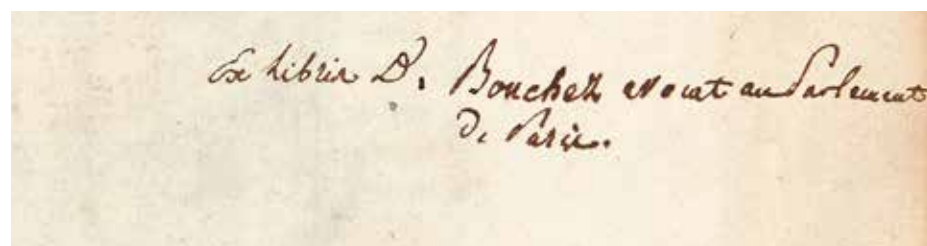 Ex libris D. Boucheu avocat au Parlement
De Paris.